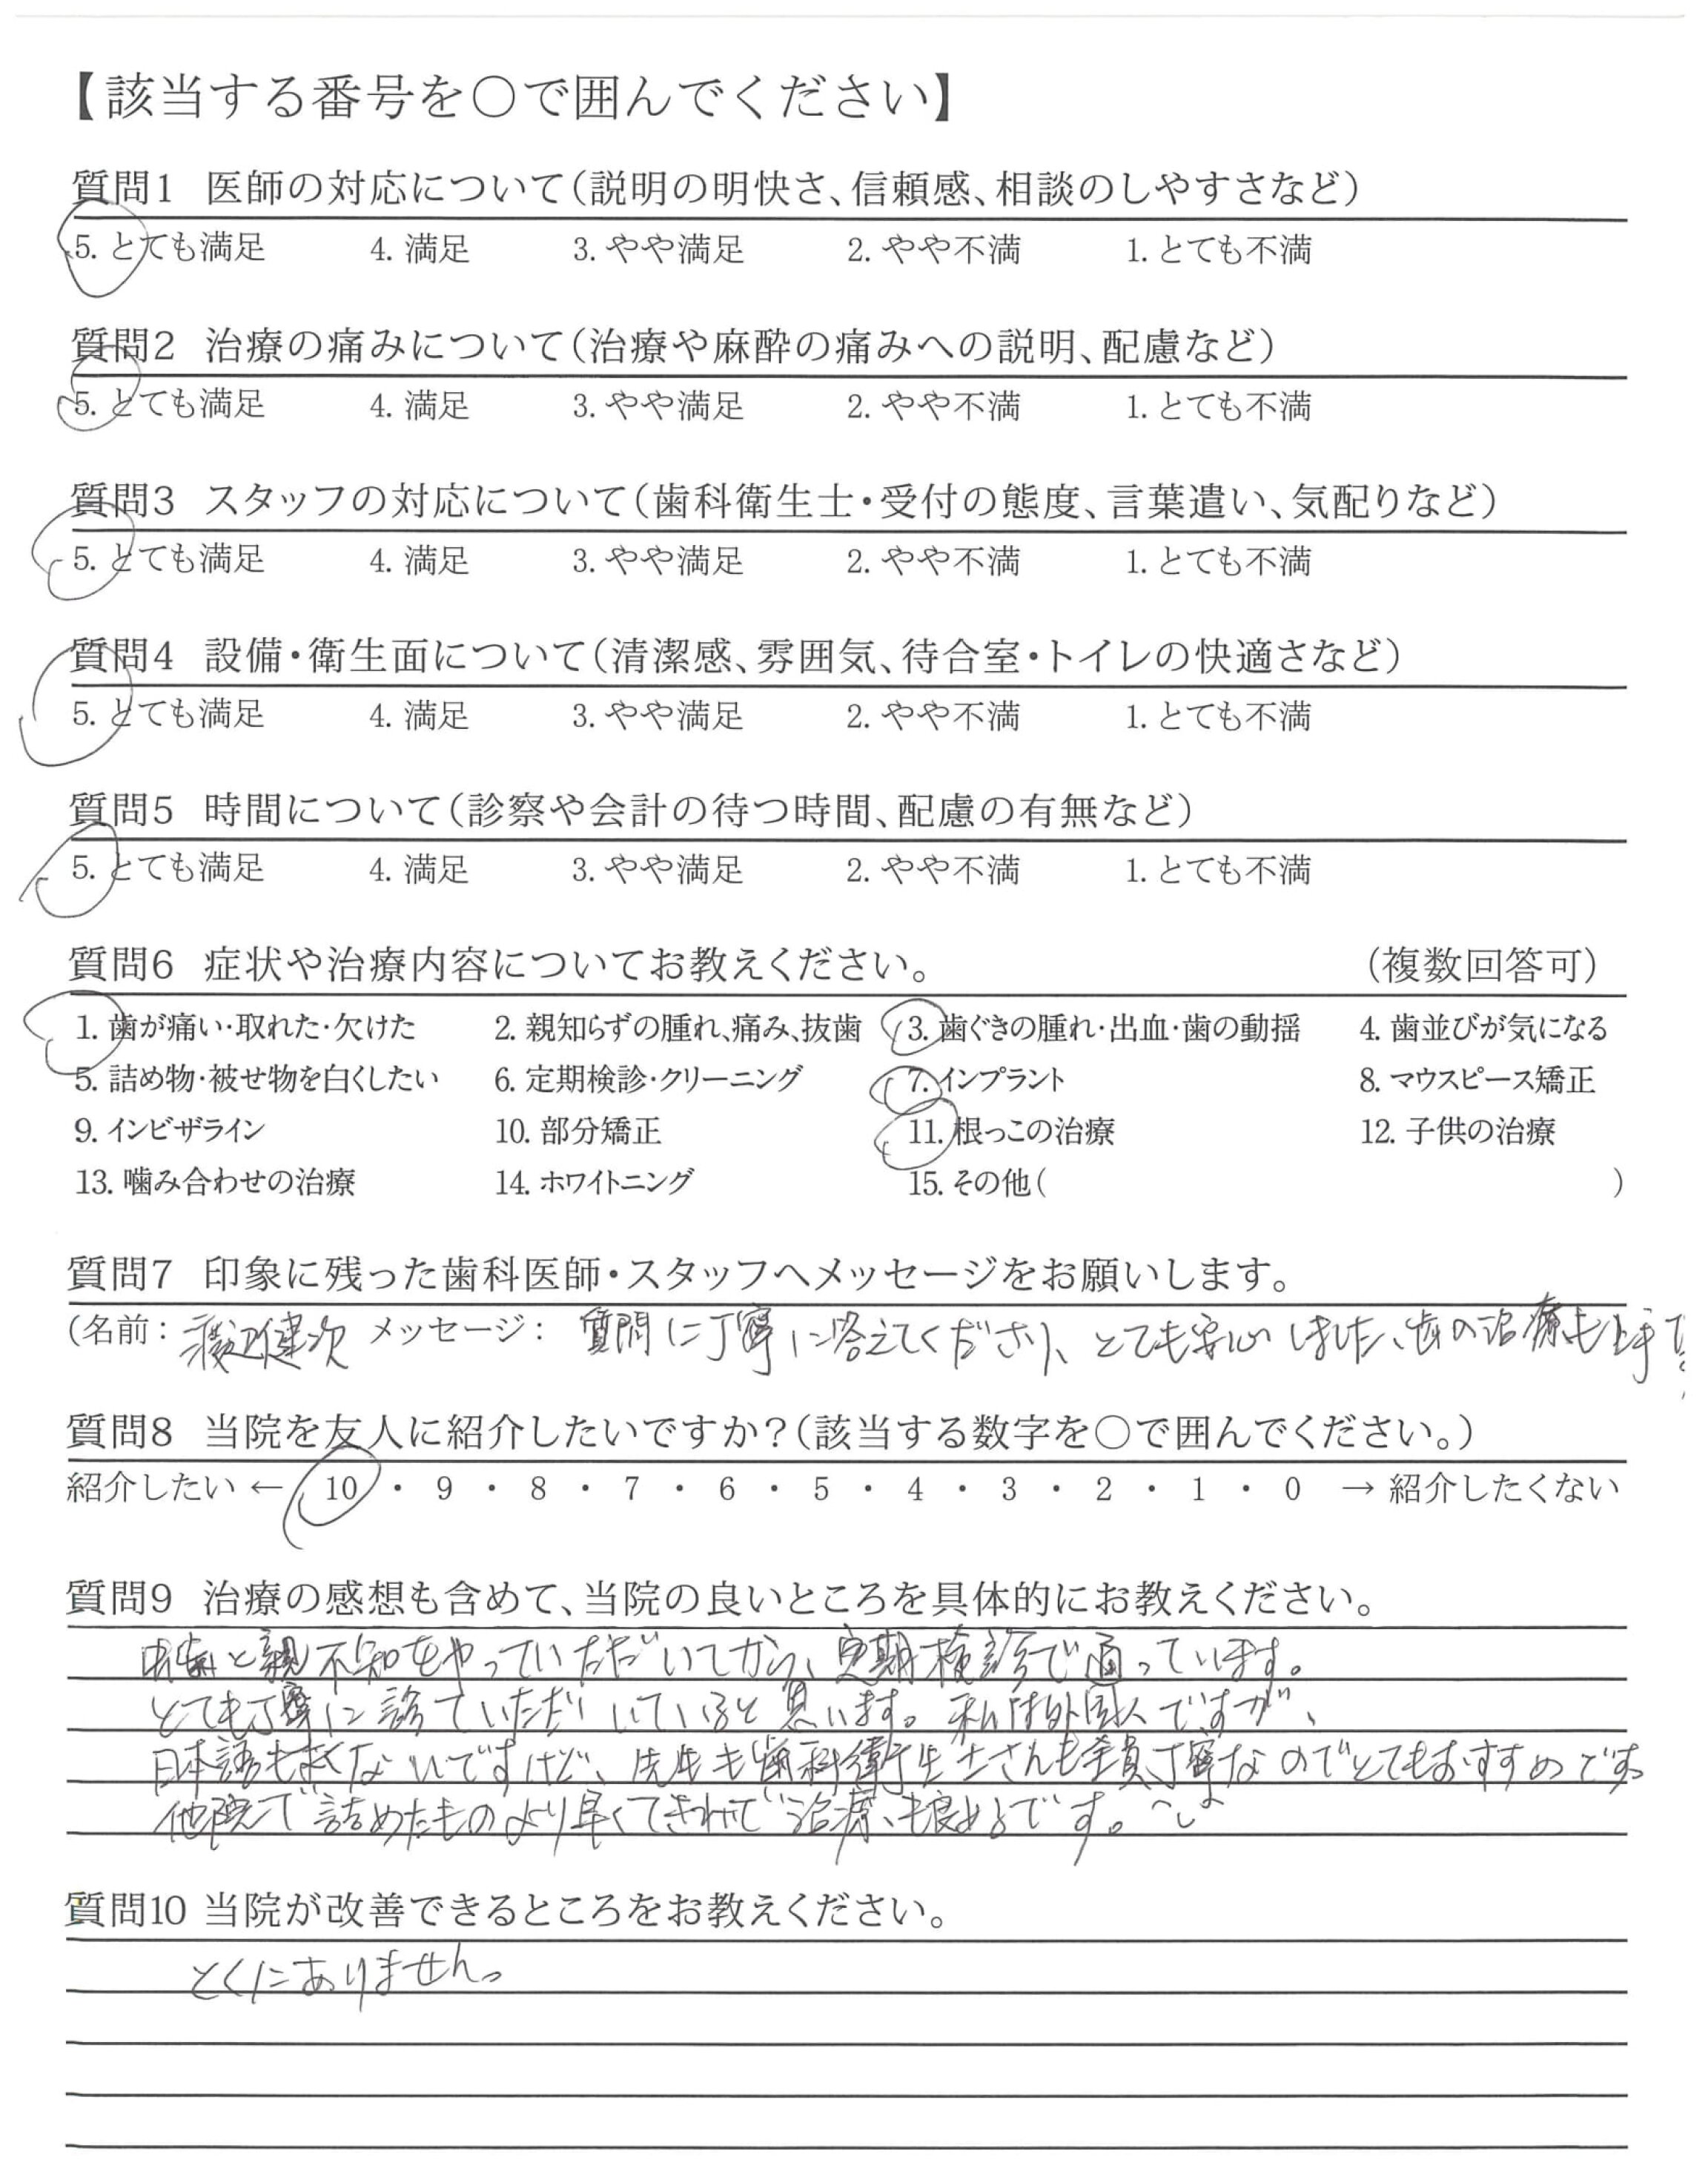 【該当する番号を〇で囲んでください】
質問1 医師の対応について(説明の明快さ、信頼感、相談のしやすさなど)
5. とても満足 4. 満足 3. やや満足 2. やや不満 1. とても不満
質問2 治療の痛みについて(治療や麻酔の痛みへの説明、配慮など)
5. とても満足 4. 満足 3. やや満足 2. やや不満 1. とても不満
質問3 スタッフの対応について(歯科衛生士・受付の態度、言葉遣い、気配りなど)
5. とても満足 4. 満足 3. やや満足 2. やや不満 1. とても不満
質問4 設備・衛生面について(清潔感、雰囲気、待合室・トイレの快適さなど)
5. とても満足 4. 満足 3. やや満足 2. やや不満 1. とても不満
質問5 時間について(診察や会計の待つ時間、配慮の有無など)
5. とても満足 4. 満足 3. やや満足 2. やや不満 1. とても不満
質問6 症状や治療内容についてお教えください。 (複数回答可)
1. 歯が痛い・取れた・欠けた 2. 親知らずの腫れ、痛み、抜歯 3. 歯ぐきの腫れ・出血・歯の動揺 4. 歯並びが気になる
5. 詰め物・被せ物を白くしたい 6. 定期検診・クリーニング 7. インプラント 8. マウスピース矯正
9. インビザライン 10. 部分矯正 11. 根っこの治療 12. 子供の治療
13. 噛み合わせの治療 14. ホワイトニング 15. その他( )
質問7 印象に残った歯科医師・スタッフへメッセージをお願いします。
(名前: 渡辺健次 メッセージ: 質問に丁寧に答えてくださり、とても安心しました、歯の治療も上手
質問8 当院を友人に紹介したいですか?(該当する数字を〇で囲んでください。)
紹介したい ← 10 ・ 9 ・ 8 ・ 7 ・ 6 ・ 5 ・ 4 ・ 3 ・ 2 ・ 1 ・ 0 → 紹介したくない
質問9 治療の感想も含めて、当院の良いところを具体的にお教えください。
虫歯と親不知をやっていただいてから、定期検診で通っています。
とても丁寧に診ていただいていると思います。私は外国人ですが、
日本語も ないですけど、先生も歯科衛生士さんも全員丁寧なのでとてもおすすめです。
他院で詰めたものより早くて 治療も です。
質問10 当院が改善できるところをお教えください。
とくにありません。